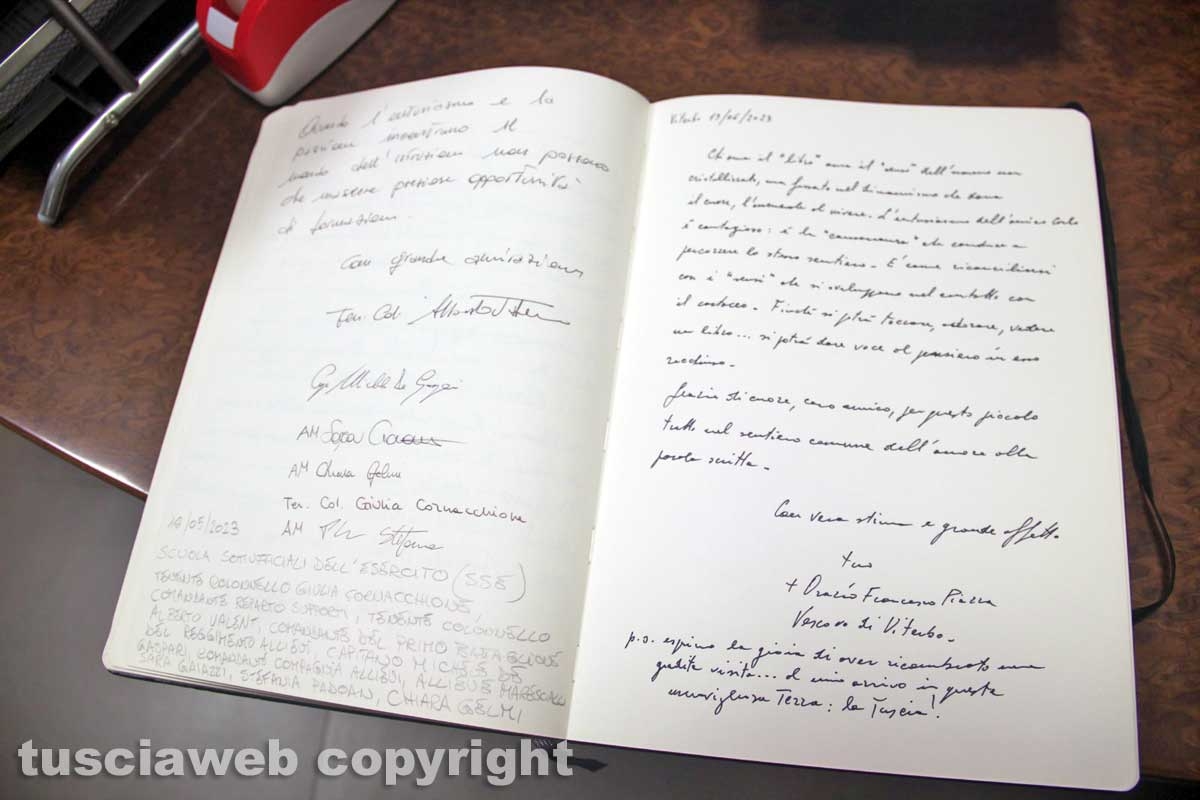 Quando l'entusiasmo e la
passione incontrano il
mondo dell'istruzione non possono
che nascere preziose opportunità
di formazione.
Con grande ammirazione
Ten. Col.
AM Sara
AM Chiara Gelmi
Ten. Col. Giulia Cornacchione
AM Stefania
16/05/2023
SCUOLA SOTTUFFICIALI DELL'ESERCITO (SSE)
TENENTE COLONNELLO GIULIA CORNACCHIONE,
COMANDANTE REPARTO SUPPORTI, TENENTE COLONNELLO
ALBERTO VALENT, COMANDANTE DEL PRIMO BATTAGLIONE
DEL REGGIMENTO ALLIEVI, CAPITANO MICHELE DE
GASPARI, COMANDANTE COMPAGNIA ALLIEVI, ALLIEVE MARESCIALLI
SARA GAIAZZI, STEFANIA PADOAN, CHIARA GELMI
Viterbo 19/06/2023
Chi ama il "libro" ama il "senso" dell'umano non
cristallizzato, ma fermato nel dinamismo che dona
il cuore, l'umano e il vivere. L'entusiasmo dell'amico
è contagioso: è la "consonanza" che conduce a
percorrere lo stesso sentiero. È come riconciliarsi
con i "sensi" che si sviluppano nel contatto con
il cartaceo. Finché si potrà toccare, odorare, vedere
un libro... si potrà dare voce al pensiero in esso
racchiuso.
Grazie di cuore, caro amico, per questo piccolo
tratto nel sentiero comune dell'amore alla
parola scritta.
Con vera stima e grande affetto
tuo
+ Orazio Francesco Piazza
Vescovo di Viterbo.
p.s. esprimo la gioia di aver ricambiato una
gradita visita... al mio arrivo in questa
meravigliosa Terra: la Tuscia!
tusciaweb copyright